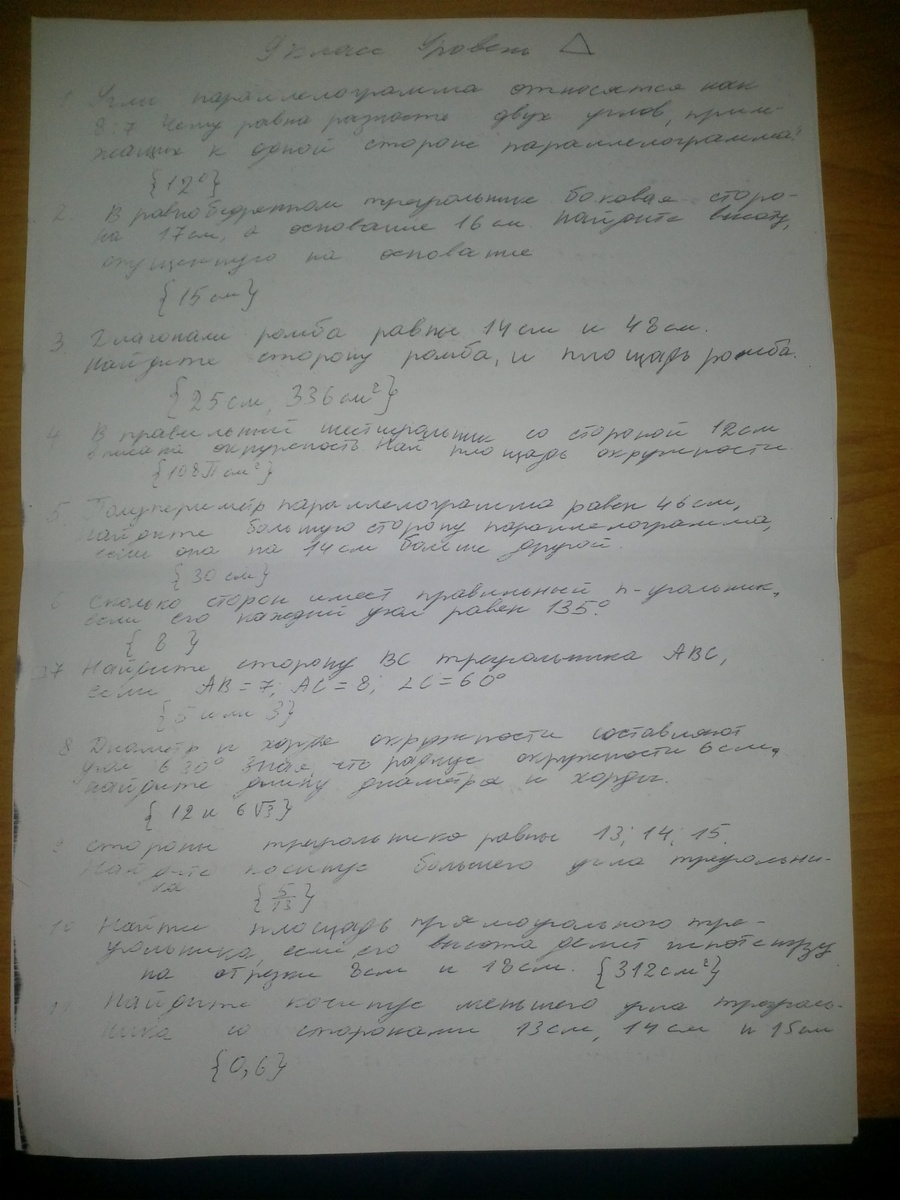 9 класс Уровень △
1 Углы параллелограмма относятся как
8:7 Чему равна разность двух углов, приле-
жащих к одной стороне параллелограмма?
{12°}
2 В равнобедренном треугольнике боковая сторо-
на 17см, а основание 16см Найдите высоту,
опущенную на основание
{15см}
3 Диагонали ромба равны 14см и 48см.
Найдите сторону ромба, и площадь ромба.
{25см, 336см²}
4 В правильный шестиугольник со стороной 12см
вписана окружность Най площадь окружности
{108π см²}
5 Полупериметр параллелограмма равен 46см,
найдите большую сторону параллелограмма,
если она на 14см больше другой.
{30см}
6 Сколько сторон имеет правильный n-угольник,
если его каждый угол равен 135°
{8}
7 Найдите сторону BC треугольника ABC,
если AB=7; AC=8; ∠C=60°
{5 или 3}
8 Диаметр и хорда окружности составляют
угол 30° Зная, что радиус окружности 6см,
найдите длину диаметра и хорды.
{12 и 6√3}
9 Стороны треугольника равны 13; 14; 15.
Найдите косинус большего угла треугольни-
ка {5/13}
10 Найти площадь прямоугольного тре-
угольника, если его высота делит гипотенузу
на отрезки 8см и 18см. {312см²}
11 Найдите косинус меньшего угла треуголь-
ника со сторонами 13см, 14см и 15см
{0,6}